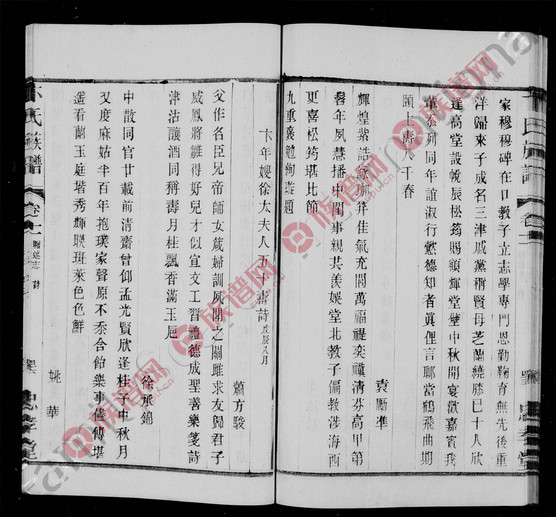 家穆穆碑在口教子立志學專門恩勤鞠育無先後重
洋歸來子成名三津戚黨稱賢母芝蘭繞膝已十人欣
逢高堂設帨辰松筠賜額輝堂壁中秋開宴歡嘉賓我
董泰列同年誼叙行歉德知者真俚言聊當鶴飛曲期
頤上壽人千春
袁勵準
輝煌紫誥
佳氣充閭萬福禔奕禩清芬高甲第
髫年夙慧播中閨事親共羨娛堂北教子偏教涉海西
更喜松筠堪比節
九重褒體絢題
卞年嫂徐太夫人五十壽詩戊辰八月
蕭方駿
父作名臣兄帝師女箴婦訓夙聞之關雎求友歸君子
威鳳將雛得好兒才似宣文工習禮德成聖善樂箋詩
津沽釀酒同稱壽月桂飄香滿玉巵
徐承錦
中散同官廿載前清齋曾仰孟光賢欣逢桂子中秋月
又度麻姑半百年抱璞家聲原不忝合飴樂事舊傳堪
遥看蘭玉庭堦秀輝聯斑萊色色鮮
姚華
卞氏族譜
卷十一
忠孝堂
族谱网